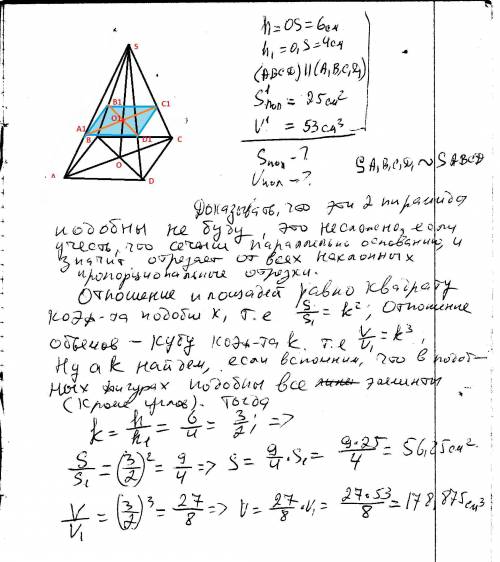 S
h = OS = 6см
h₁ = O₁S = 4см
(ABCD) || (A₁B₁C₁D₁)
S¹пол = 25 см²
V¹ = 53 см³
Sпол - ?
Vпол - ?
SA₁B₁C₁D₁ ~ SABCD
B1
C1
O1
A1
B
D1
C
A
O
D
Доказывать, что эти 2 пирамиды
подобны не буду, это несложно, если
учесть, что сечение параллельно основанию, и
значит отрезает от всех наклонных
пропорциональные отрезки.
Отношение площадей равно квадрату
коэф-та подобия, т.е S/S₁ = k²; Отношение
объемов - кубу коэф-та k. т.е V/V₁ = k³,
Ну а k найдем, если вспомним, что в подоб-
ных фигурах подобны все элементы
(кроме углов). Тогда
k = h/h₁ = 6/4 = 3/2; =>
S/S₁ = (3/2)² = 9/4 => S = 9/4 · S₁ = 9·25/4 = 56,25 см²
V/V₁ = (3/2)³ = 27/8 => V = 27/8 · V₁ = 27·53/8 = 178,875 см³